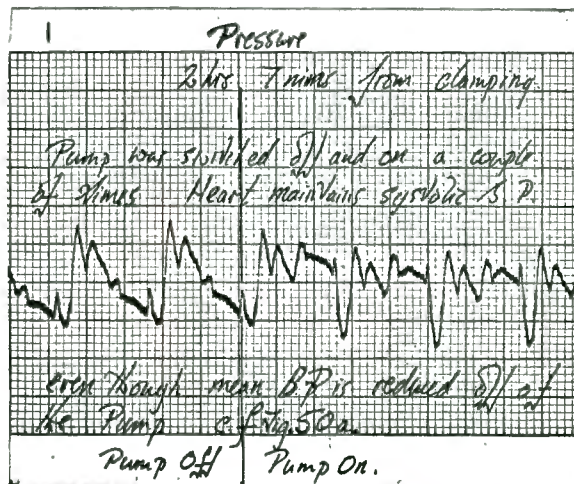 1
Pressure
2 hrs 7 mins from clamping.
Pump was switched off and on a couple
of times Heart maintains systolic B.P.
even though mean BP is reduced off of
the Pump c.f Fig. 50a.
Pump Off Pump On.